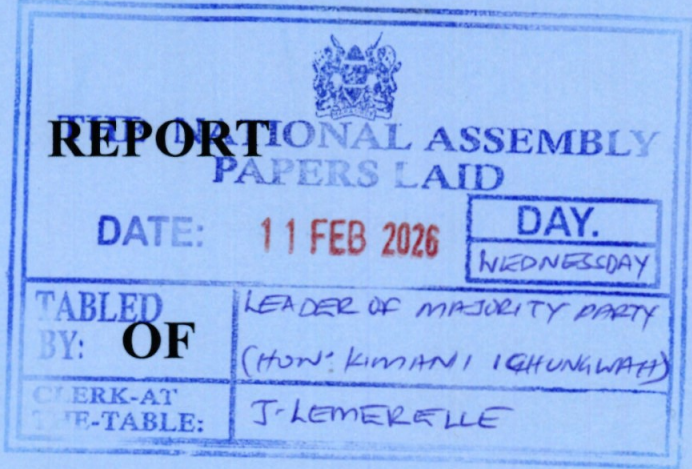 THE NATIONAL ASSEMBLY
REPORT
PAPERS LAID
DATE: 11 FEB 2026
DAY.
WEDNESSDAY
TABLED BY:
LEADER OF MAJORITY PARTY
(HON. KIMANI ICHUNGWAH)
OF
CLERK-AT THE-TABLE:
J. LEMERELLE